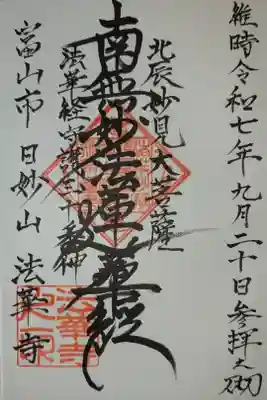 維時令和七年九月二十日参拝之砌
北辰妙見大菩薩
南無妙法蓮華経
法華経守護三十番神
富山市 日妙山 法華寺